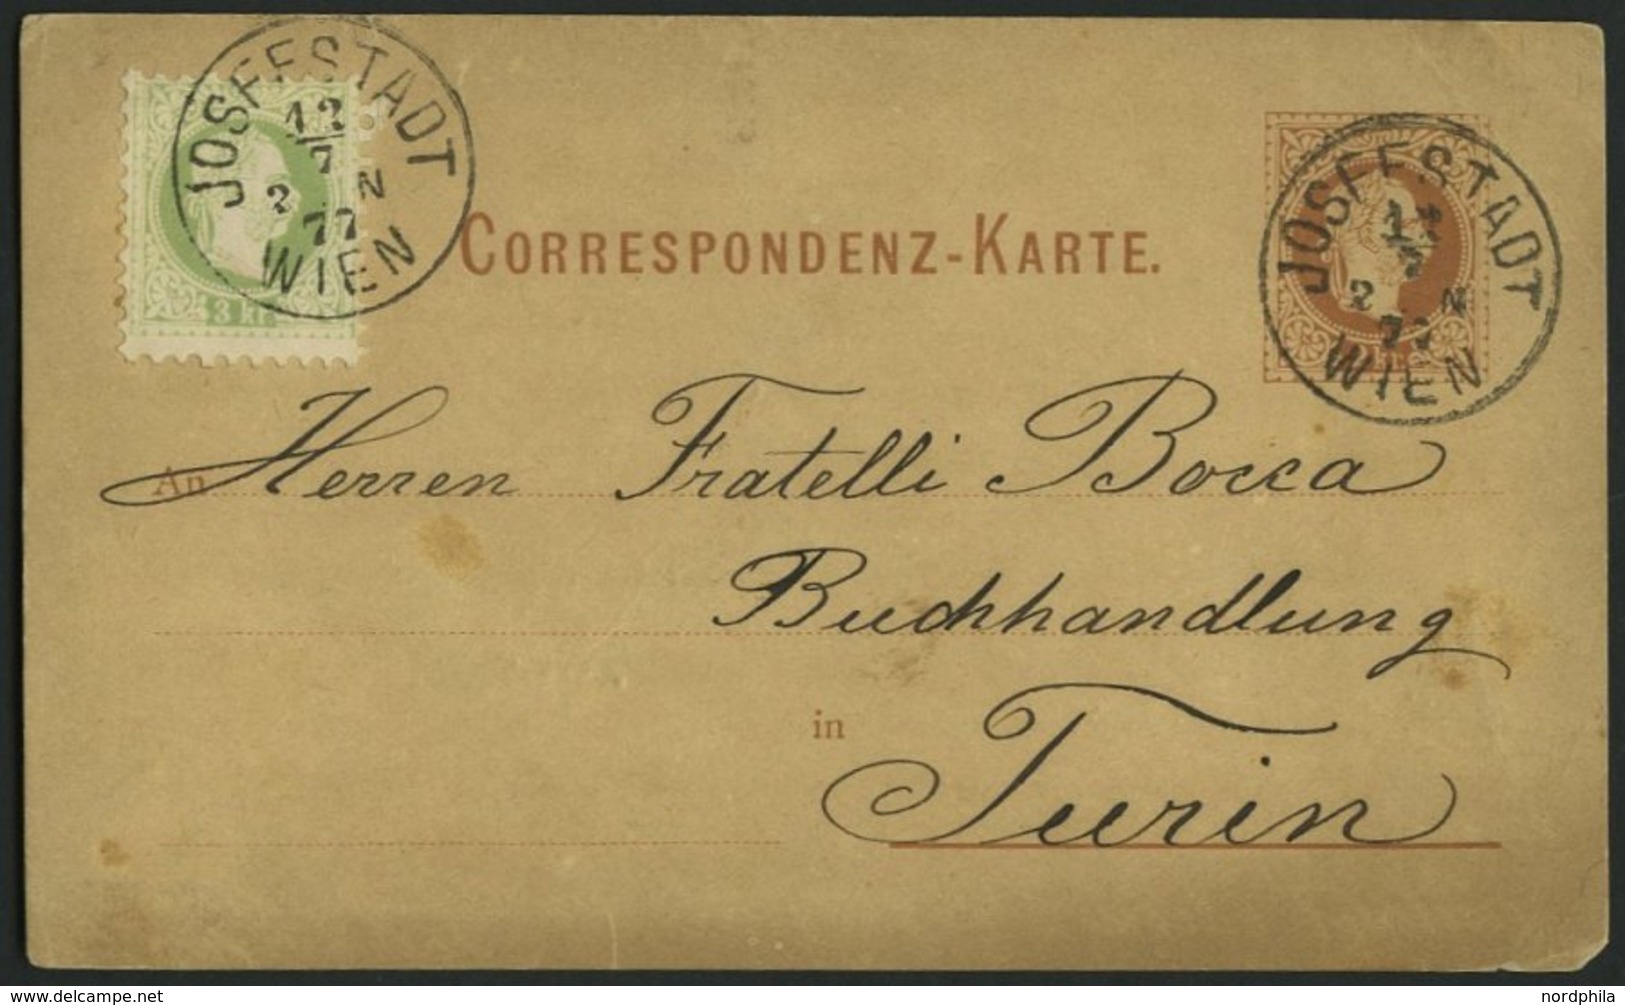 JOSEFSTADT
12
7
2 N
77
WIEN
3 kr.
CORRESPONDENZ-KARTE.
JOSEFSTADT
2 N
WIEN
An Herren Fratelli Bocca
Buchhandlung
in Turin
nordphila